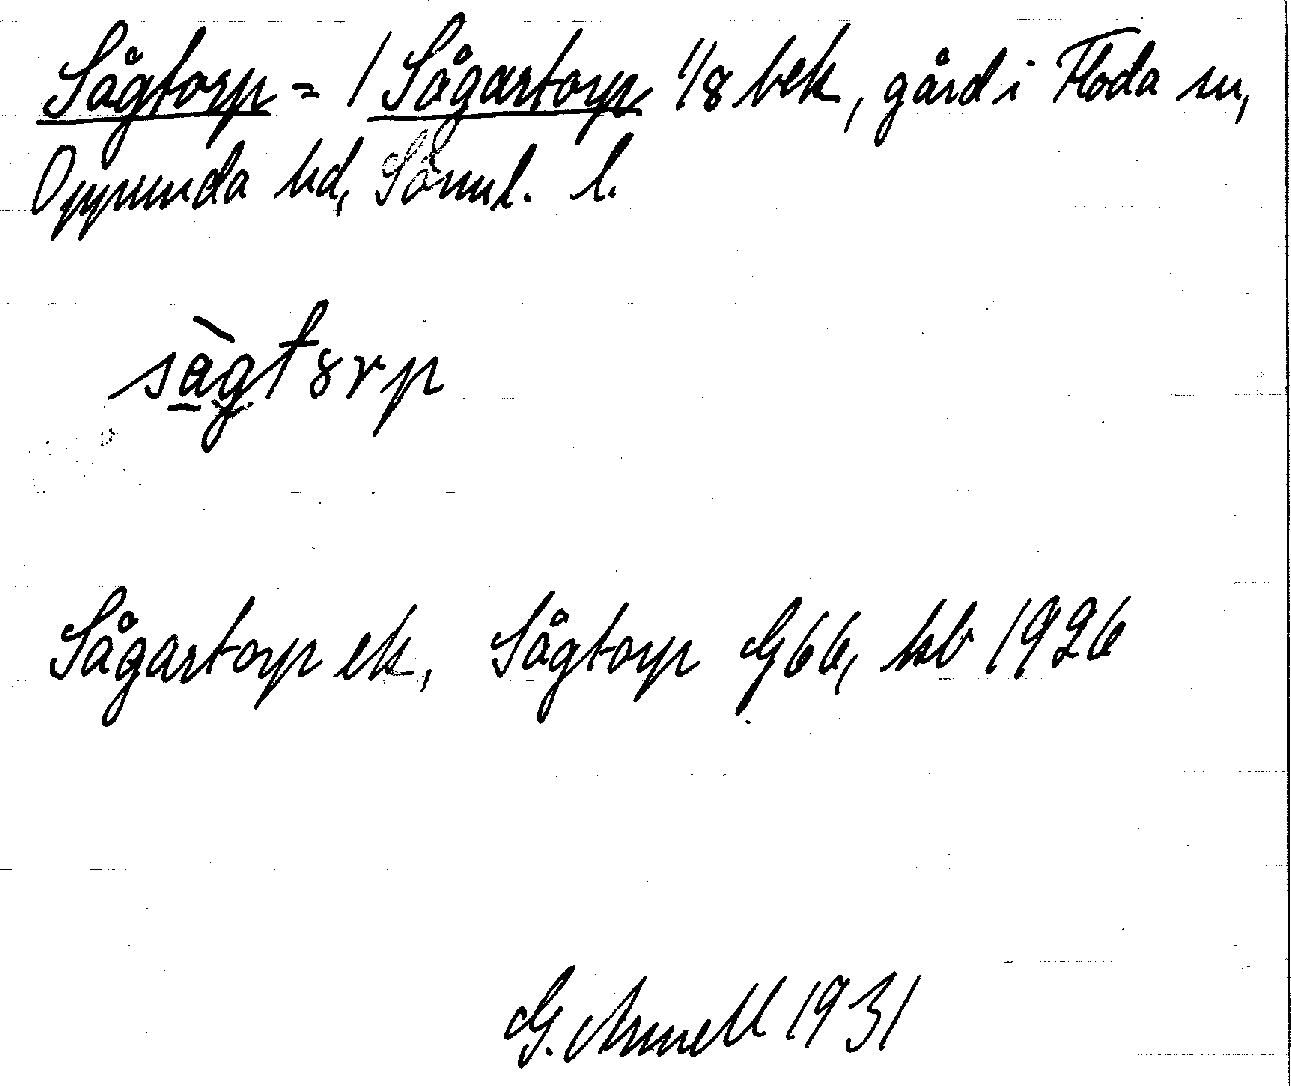 Sågtorp = / Sågartorp 1/8 bek, gård i Floda sn,
Oppunda hd, Söml. l.
sàgtȣrp
Sågartorp ek, Sågtorp G66, kb 1926
G. Arnell 1931